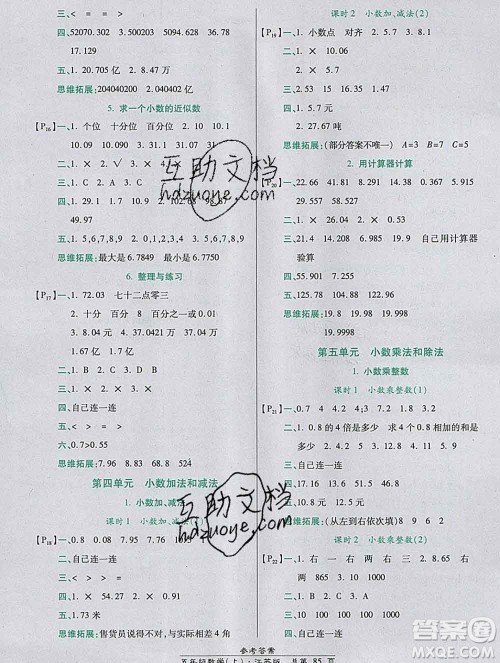 三、< > = =
四、52070.302 3.500203 54.375 6.05
97.129
五、1. 2.105亿 2. 1.21亿
思维拓展:204040200
5. 求一个小数的近似数
【P₁₆】一、1. 个位 十分位 百分位 2. 10 10.1
10.09 10.090 3. 32.1 32.09
二、1. × 2. √ 3. ×
三、1. C 2. A 3. D
四、1.29 0.5 4.91 102.68 98.87
49.97
五、1. 5,6,7,8,9 2. 1,2,3,4
思维拓展:最大是6.7849 最小是6.7750
6. 整理与练习
【P₁₇】一、1. 72.03 七十二点零三
2. 十分 8 百分 8 百分之一 0.01
3. 1.67亿 2亿
二、1. B 2. B 3. A 4. D
三、< > = >
四、自己连一连
五、< = > <
六、0.7>0.55
思维拓展:8.96 9.86 6.89 9.68
第四单元 小数加法和减法
1. 小数加、减法
课时1 小数加、减法(1)
【P₁₈】一、0.8 0.9 4.8 0.7 0.5
二、自己连一连
三、< > = >
四、
五、1.73米
思维拓展:售货员说得不对,还差4角
课时2 小数加、减法(2)
【P₁₉】一、1. 小数点 对齐 2. 15.7 5.9
二、
三、1. B 2. C 3. B
四、1. 8.6元
2. 27.67吨
思维拓展:(部分答案不唯一) A=3 B=7 C=5
2. 用计算器计算
【P₂₀】一、22.66 41.81 100 36.98 9.8
98.53
二、21.51 14.208 9.298 自己用计算器
验算
三、25.1 15.8 29.6
四、123.88
五、125.78
思维拓展:19.8 19.98 19.998
19.9998
第五单元 小数乘法和除法
1. 小数乘整数
课时1 小数乘整数(1)
【P₂₁】一、1. 0.8的4倍是多少 4个0.8相加的和是
多少 2. 0.5 4 2 0.5 4 2
二、
三、自己连一连
四、10.8元
思维拓展:(从左到右依次填) 8 9 6 2
课时2 小数乘整数(2)
【P₂₂】一、1. 右 一 右 两 右 三
2. 10 100 1000
二、318 0.65 0.8 62 3.06 8970
三、10 10 100 1000 1000 100
参考答案
五年级数学(上)·江苏版 总第85页
互助文档
hdzuoye.com
互助文档
hdzuoye.com
答案圈
MXQE.COM